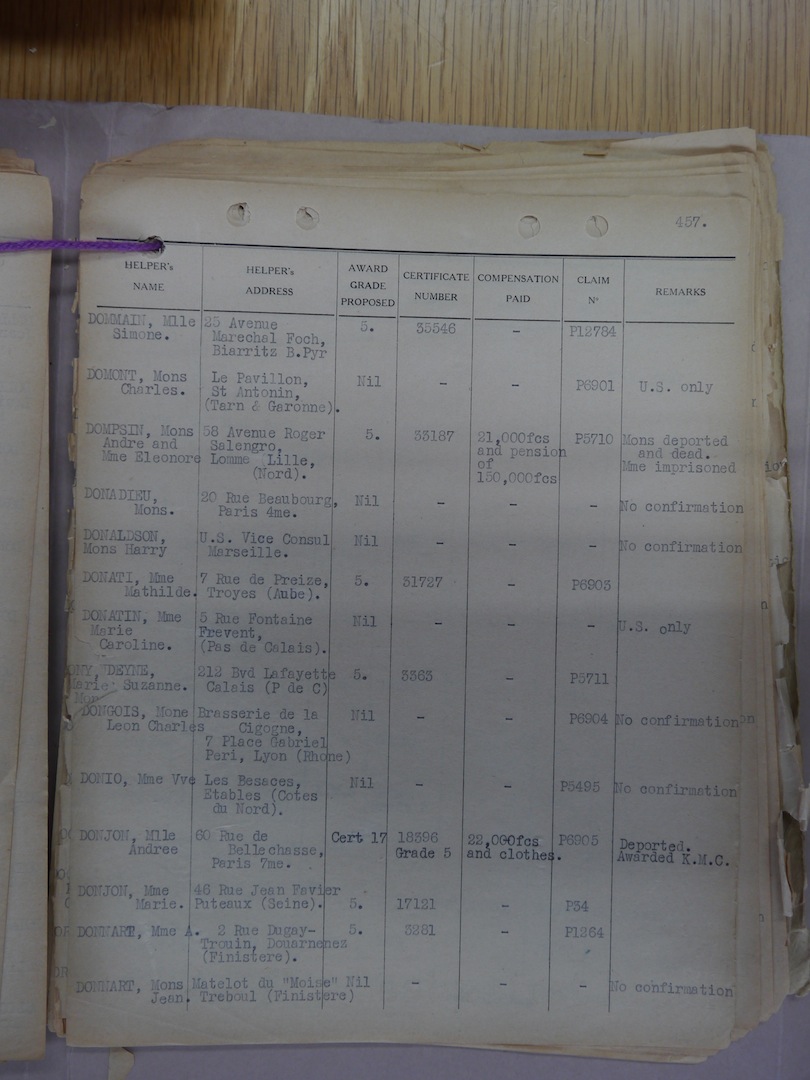 457.
HELPER's NAME | HELPER's ADDRESS | AWARD GRADE PROPOSED | CERTIFICATE NUMBER | COMPENSATION PAID | CLAIM Nº | REMARKS
DOMMAIN, Mlle | 25 Avenue | 5. | 35546 | - | P12784
Simone. | Marechal Foch,
Biarritz B.Pyr
DOMONT, Mons | Le Pavillon, | Nil | - | - | P6901 | U.S. only
Charles. | St Antonin,
(Tarn & Garonne).
DOMPSIN, Mons | 58 Avenue Roger | 5. | 33187 | 21,000fcs | P5710 | Mons deported
Andre and | Salengro, | and pension | and dead.
Mme Eleonore | Lomme Lille, | of | Mme imprisoned
(Nord). | 150,000fcs
DONADIEU, | 20 Rue Beaubourg, | Nil | - | - | - | No confirmation
Mons. | Paris 4me.
DONALDSON, | U.S. Vice Consul | Nil | - | - | - | No confirmation
Mons Harry | Marseille.
DONATI, Mme | 7 Rue de Preize, | 5. | 31727 | - | P6903
Mathilde. | Troyes (Aube).
DONATIN, Mme | 5 Rue Fontaine | Nil | - | - | - | U.S. only
Marie | Frevent,
Caroline. | (Pas de Calais).
DEYNE, | 212 Bvd Lafayette | 5. | 3363 | - | P5711
Suzanne. | Calais (P de C)
DONGOIS, Mone | Brasserie de la | Nil | - | - | P6904 | No confirmation
Leon Charles | Cigogne,
7 Place Gabriel
Peri, Lyon (Rhone)
DONIO, Mme Vve | Les Besaces, | Nil | - | - | P5495 | No confirmation
Etables (Cotes
du Nord).
DONJON, Mlle | 60 Rue de | Cert 17 | 18396 | 22,000fcs | P6905 | Deported.
Andree | Bellechasse, | Grade 5 | and clothes. | Awarded K.M.C.
Paris 7me.
DONJON, Mme | 46 Rue Jean Favier
Marie. | Puteaux (Seine). | 5. | 17121 | - | P34
DONNART, Mme A. | 2 Rue Dugay- | 5. | 3281 | - | P1264
Trouin, Douarnenez
(Finistere).
DONNART, Mons | Matelot du "Moise" | Nil | - | - | - | No confirmation
Jean. | Treboul (Finistere)